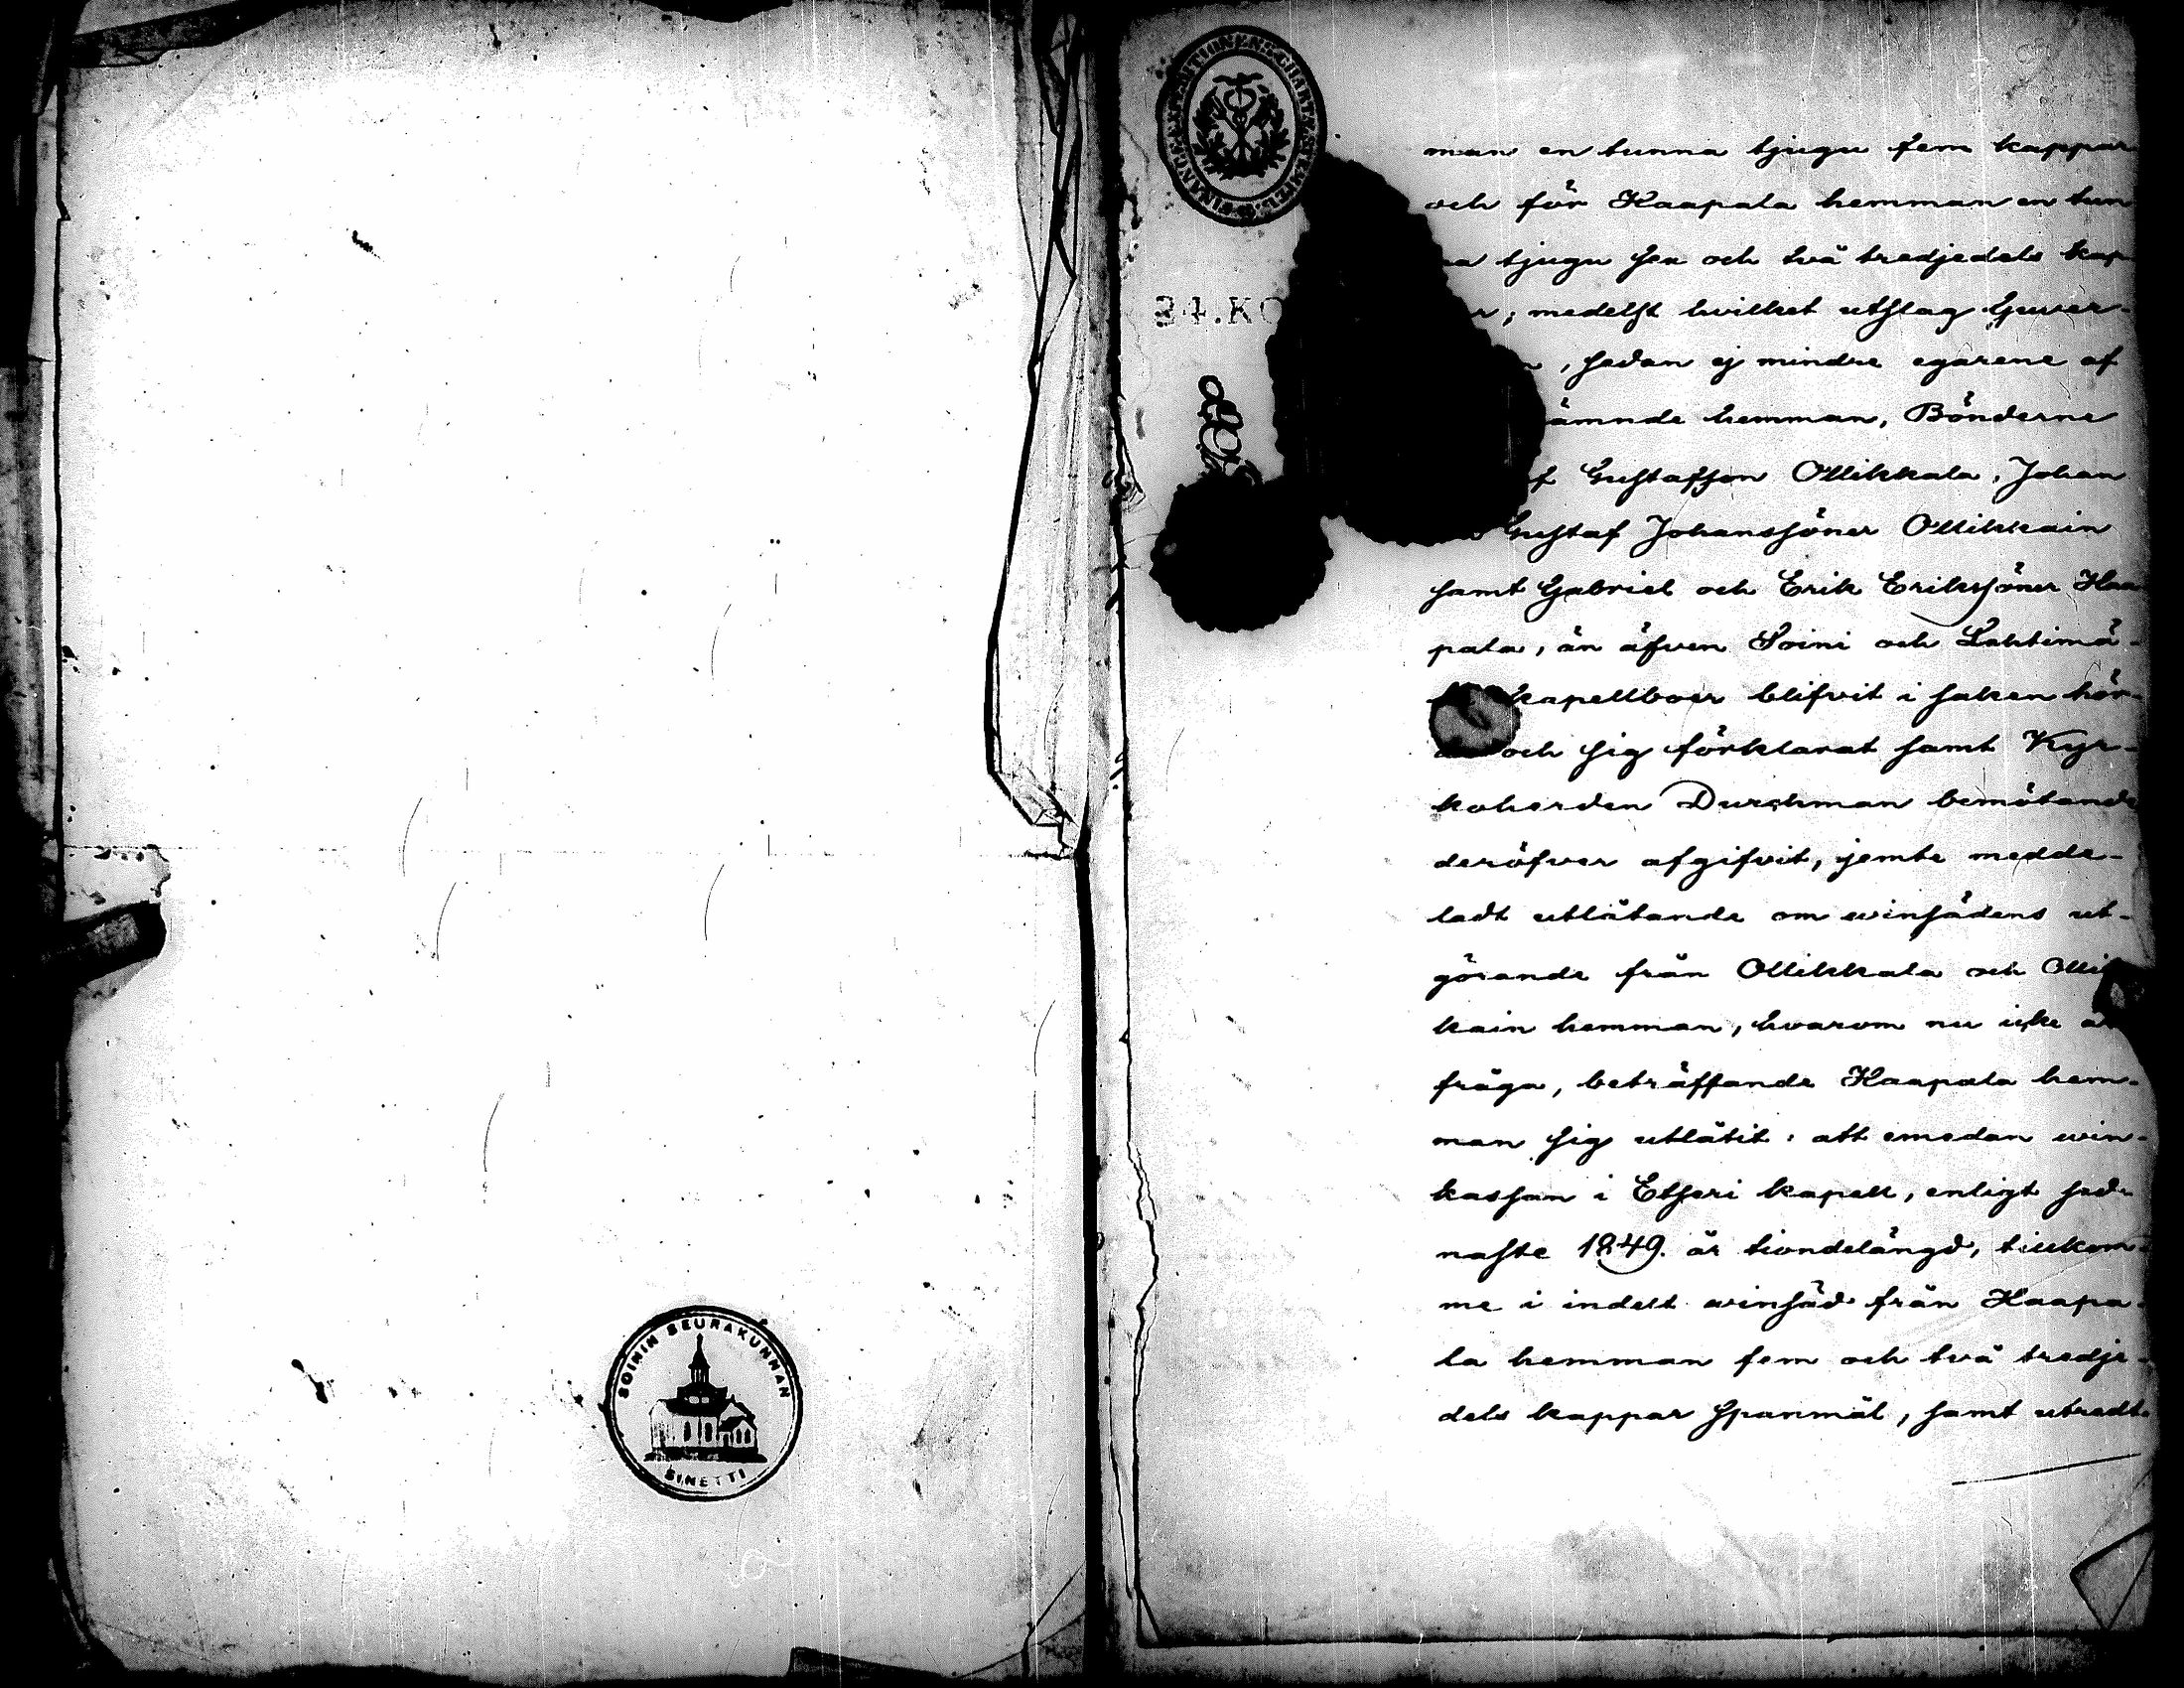 SOININ SEURAKUNNAN
SINETTI
FINANCEEXPEDITIONENS CHARTÆSTEMPEL
24.KO
man en tunna tjugu fem kappar
och för Haapala hemman en tun
na tjugu sex och två tredjedels kap
r; medelst hvilket utslag Guver-
, sedan ej mindre egarene af
ämnde hemman, Bönderne
f Gustafson Ollikkala, Johan
Gustaf Johanssöner Ollikkain
samt Gabriel och Erik Erikssöner Haa
pala, än äfven Soini och Lehtimä-
kapellboer blifvit i saken hör-
och sig förklarat samt Kyr-
koherden Durchman bemötande
deröfver afgifvit, jemte medde-
ladt utlåtande om winsädens ut-
görande från Ollikkala och Ollik
kain hemman, hvarom nu icke är
fråga, beträffande Haapala hem-
man sig utlåtit: att emedan win-
kassan i Etseri kapell, enligt sed-
naste 1849. år tiondelängd, tillkom-
me i indelt winsäd från Haapa-
la hemman fem och två tredje-
dels kappar spanmål, samt utredt